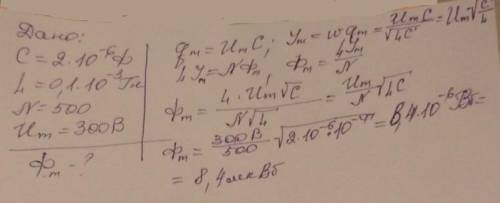 Дано:
C = 2·10⁻⁶ Ф
L = 0,1·10⁻³ Гн
N = 500
Uₘ = 300 В
Фₘ - ?
qₘ = UₘC; Iₘ = ωqₘ = UₘC/√LC = Uₘ√C/L
LIₘ = NФₘ, Фₘ = LIₘ/N
Фₘ = L·Uₘ√C/N√L = Uₘ/N √LC
Фₘ = 300В/500 √2·10⁻⁶·10⁻⁴ = 8,4·10⁻⁶ Вб =
= 8,4 мкВб